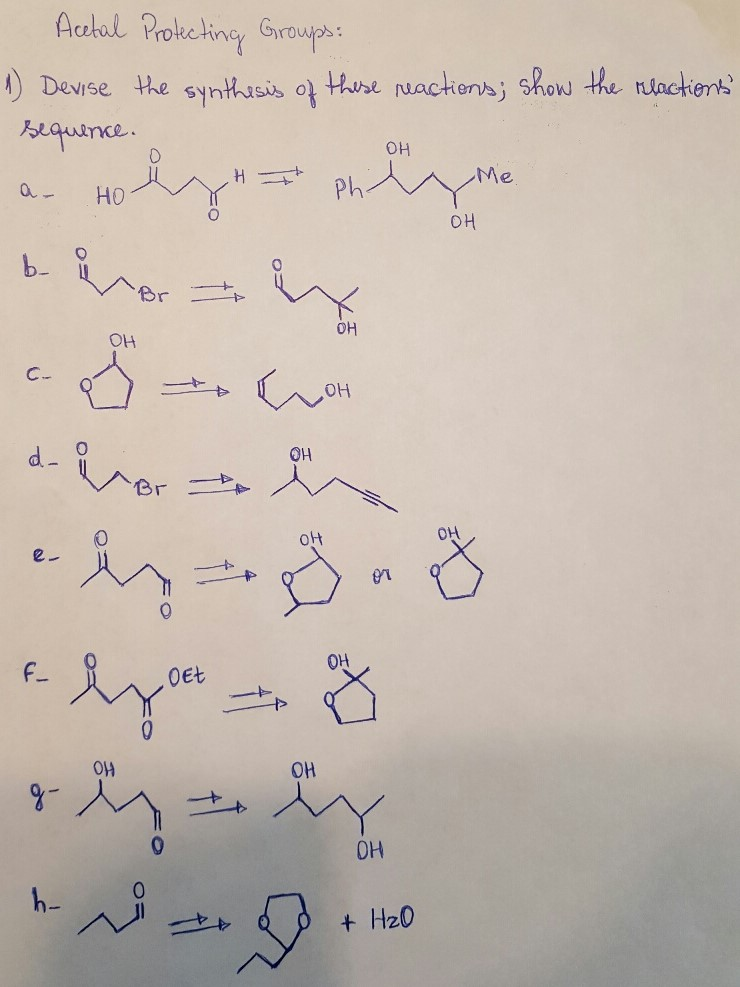 Acetal Protecting Groups:
1) Devise the synthesis of these reactions; show the reactions'
sequence.
a- HO O O H Ph OH OH Me
b- O Br O OH
c- OH O OH
d- O Br OH
e- O O OH O or OH O
f- O OEt O OH O
g- OH O OH OH
h- O O O + H2O